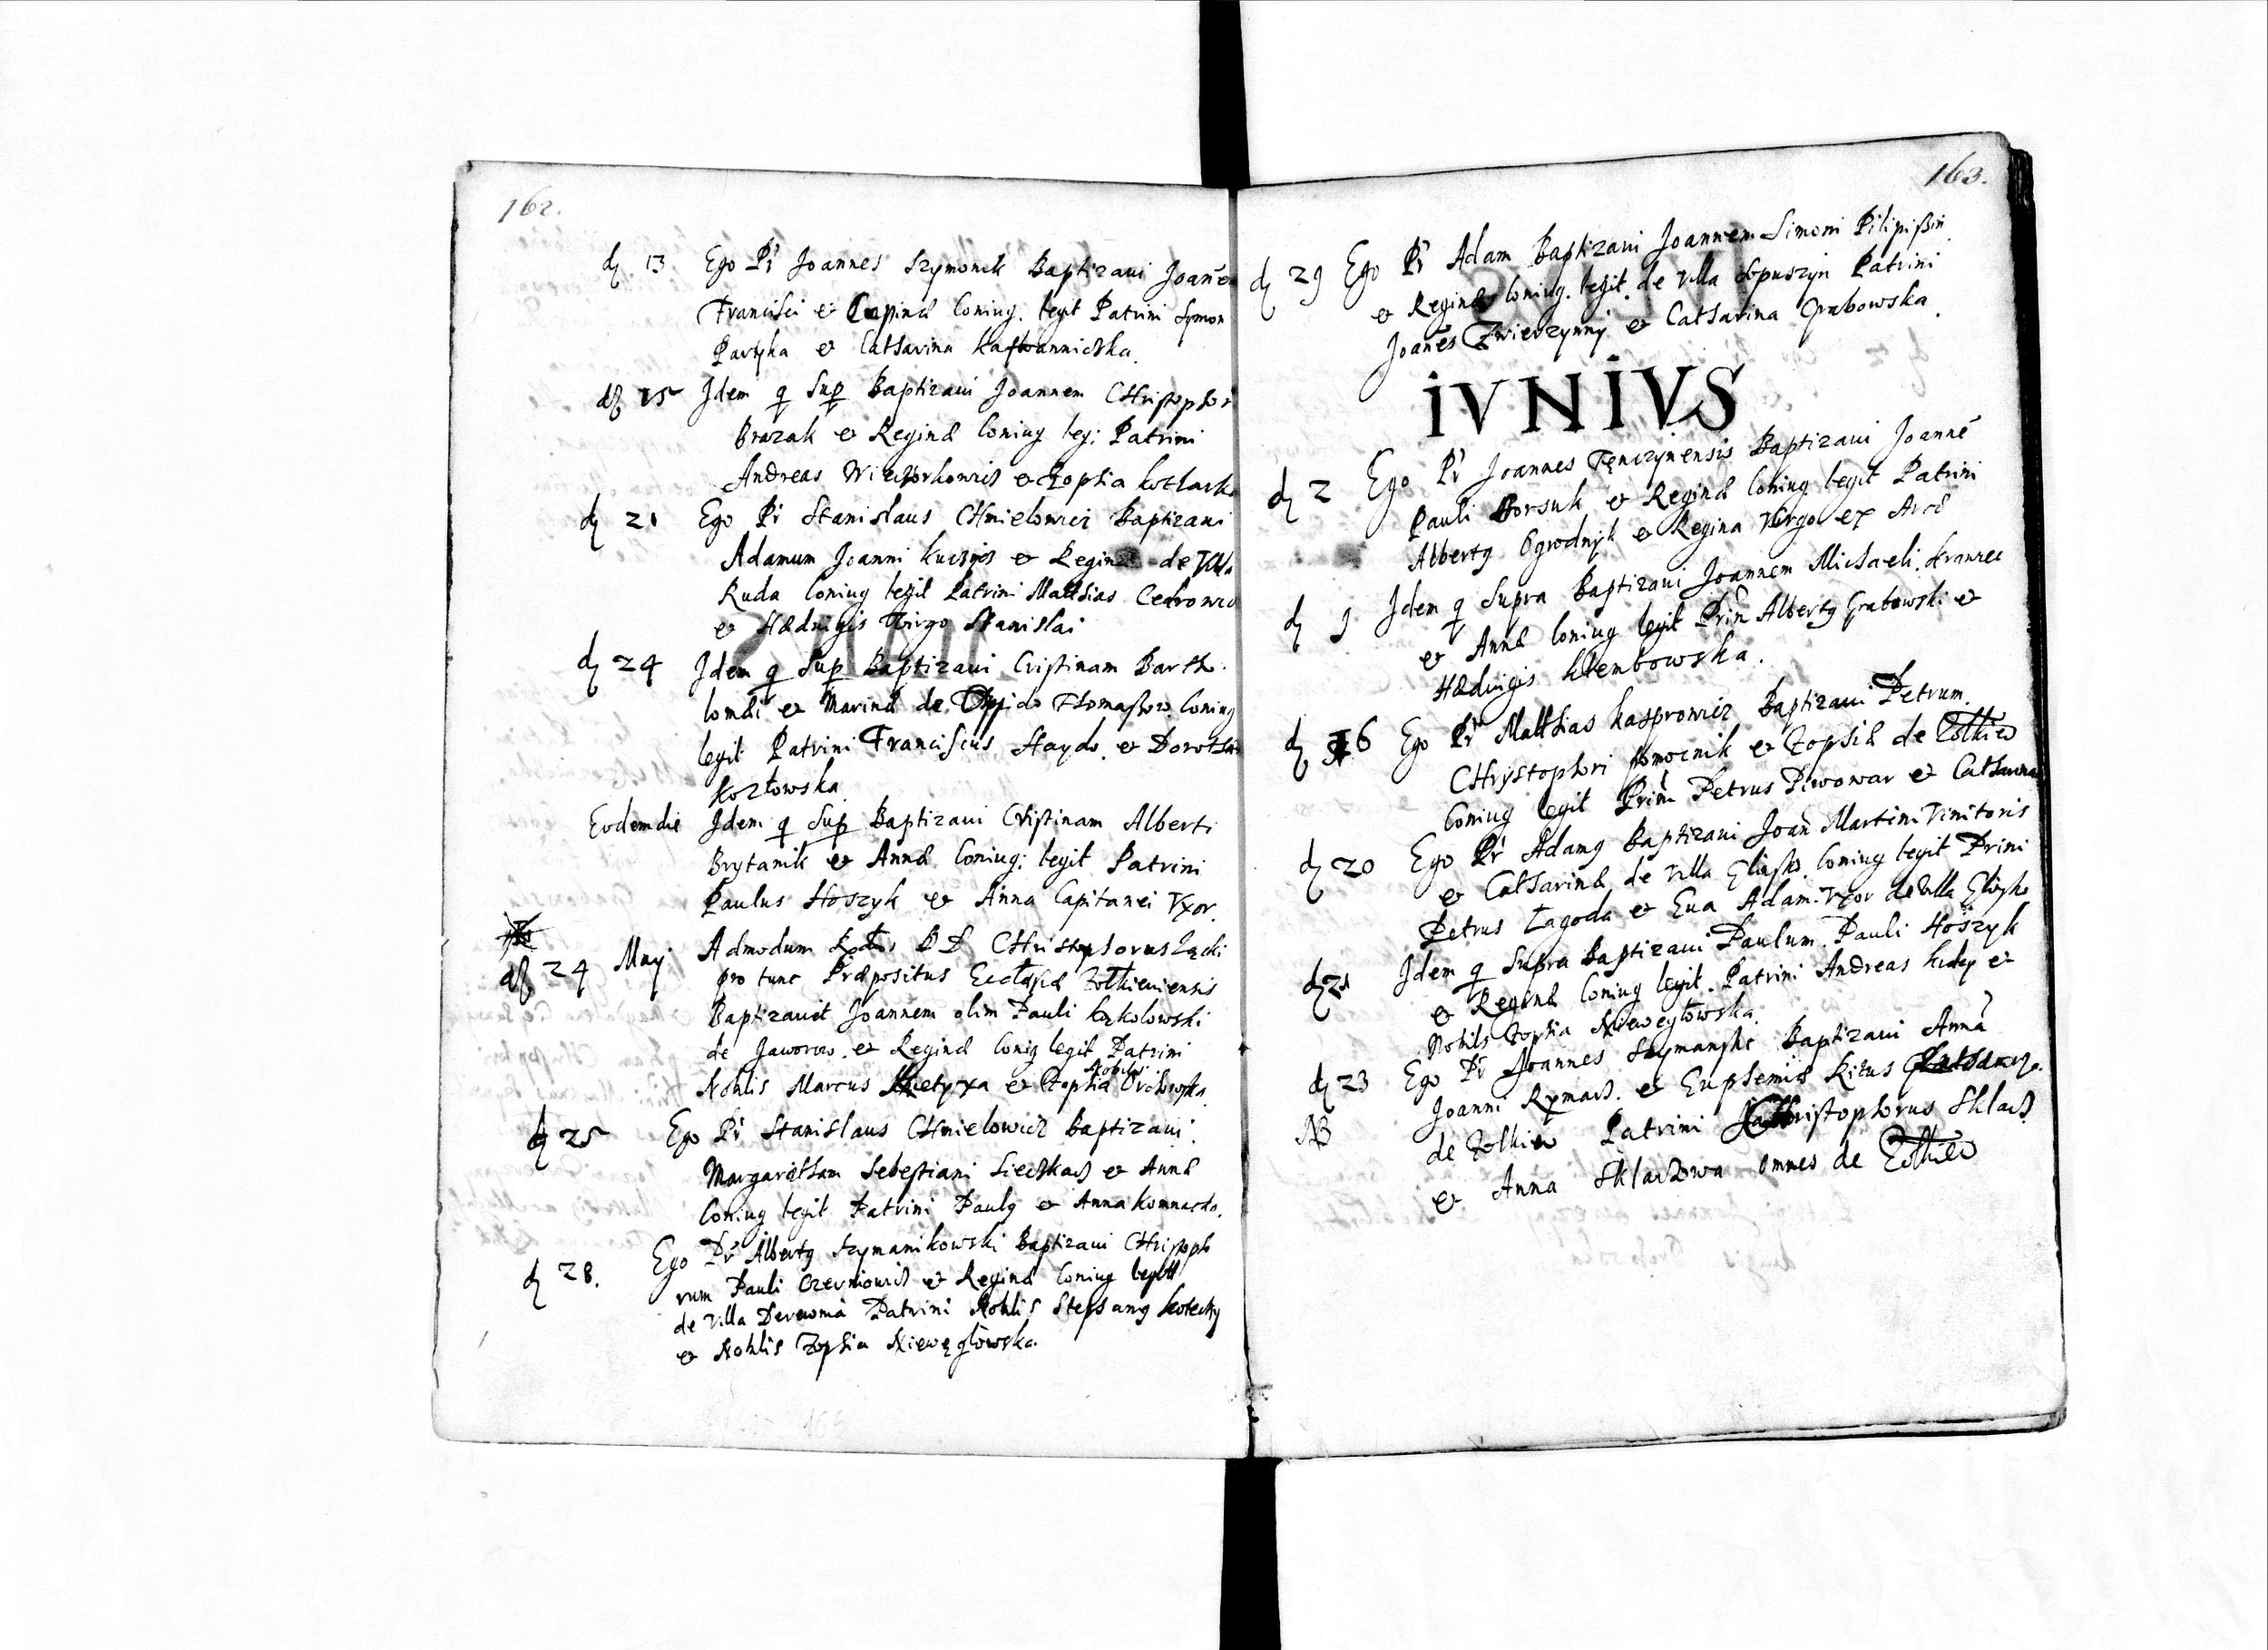 162.
d 13 Ego Pr Joannes Szymonik Baptizaui Joanē
Francisci et Conjug. legit Patrini Symon
Partyka et Catharina
d 15 Idem q Sup Baptizaui Joannem CHristophori
Brazak et Reginæ Coniug leg: Patrini
Andreas et Zophia Kotlarka
d 21 Ego Pr Stanislaus CHmielowicz Baptizaui
Adamum Joanni et Reginæ de Villa
Ruda Coniug legit Patrini Matthias Cedrowicz
et Hæduigis Virgo Stanislai
d 24 Idem q Sup Baptizaui Cristinam Bartho
lomæi et Marinæ de Oppido Coniug
legit Patrini Franciscus Hayda et Dorothea
Kozłowska
Eodem die Idem q Sup Baptizaui Cristinam Alberti
Brytanik et Annæ Coniug: legit Patrini
Paulus Hoszyk et Anna Capitanei Vxor.
d 24 May Admodum Rdus D D CHristophorus Łącki
pro tunc Præpositus Ecclesiæ Zołkieuiensis
Baptizauit Joannem olim Pauli Kąkolowski
de Jaworow et Reginæ Coniug legit Patrini
Nobilis Marcus et Zophia Nobilis
d 25 Ego Pr Stanislaus CHmielowicz Baptizaui
Margaretham Sebestiani Sieczkacz et Annæ
Coniug legit Patrini Paulg et Anna
d 28. Ego Pr Albertg Szymanikowski Baptizaui CHristopho
rum Pauli et Reginæ Coniug legitt
de Villa Derewnia Patrini Noblis Stephang
et Noblis Zophia Niewęgłowska
163.
d 29 Ego Pr Adam Baptizaui Joannem Simoni
et Reginæ Coniug. legit. de Villa Patrini
Joanēs Zwierzynny et Catharina Grabowska
IVNIVS
d 2 Ego Pr Joannes Tęnczynensis Baptizaui Joannē
Pauli Borsuk et Reginæ Coniug legit Patrini
Albertg Ogrodnyk et Regina Virgo ex Arce
d 9 Idem q Supra Baptizaui Joannem Michaeli
et Annæ Coniug legit Prin Albertg Grabowski et
Hædwigis
d 16 Ego Pr Matthias Kasprowicz Baptizaui Petrum
CHrystophori Pomocnik et Zophiæ de Zołkiew
Coniug legit Prini Petrus Piwowar et Catharina
d 20 Ego Pr Adamg Baptizaui Joan Martini Vinitoris
et Catharinæ de Villa Glinsko Coniug legit Prini
Petrus Łagoda et Eua Adam Vxor de Villa Glinsko
d 21 Idem q Supra Baptizaui Paulum Pauli Hoszyk
et Reginæ Coniug legit. Patrini Andreas et
Nobilis Zophia Niewęgłowska
d 23 Ego Pr Joannes Szymanski Baptizaui Annā
Joanni Rymarz et Euphemiæ Ritus
NB de Zolkiew Patrini CHristophorus Sklarz
et Anna Sklarzowa omnes de Zolkiew